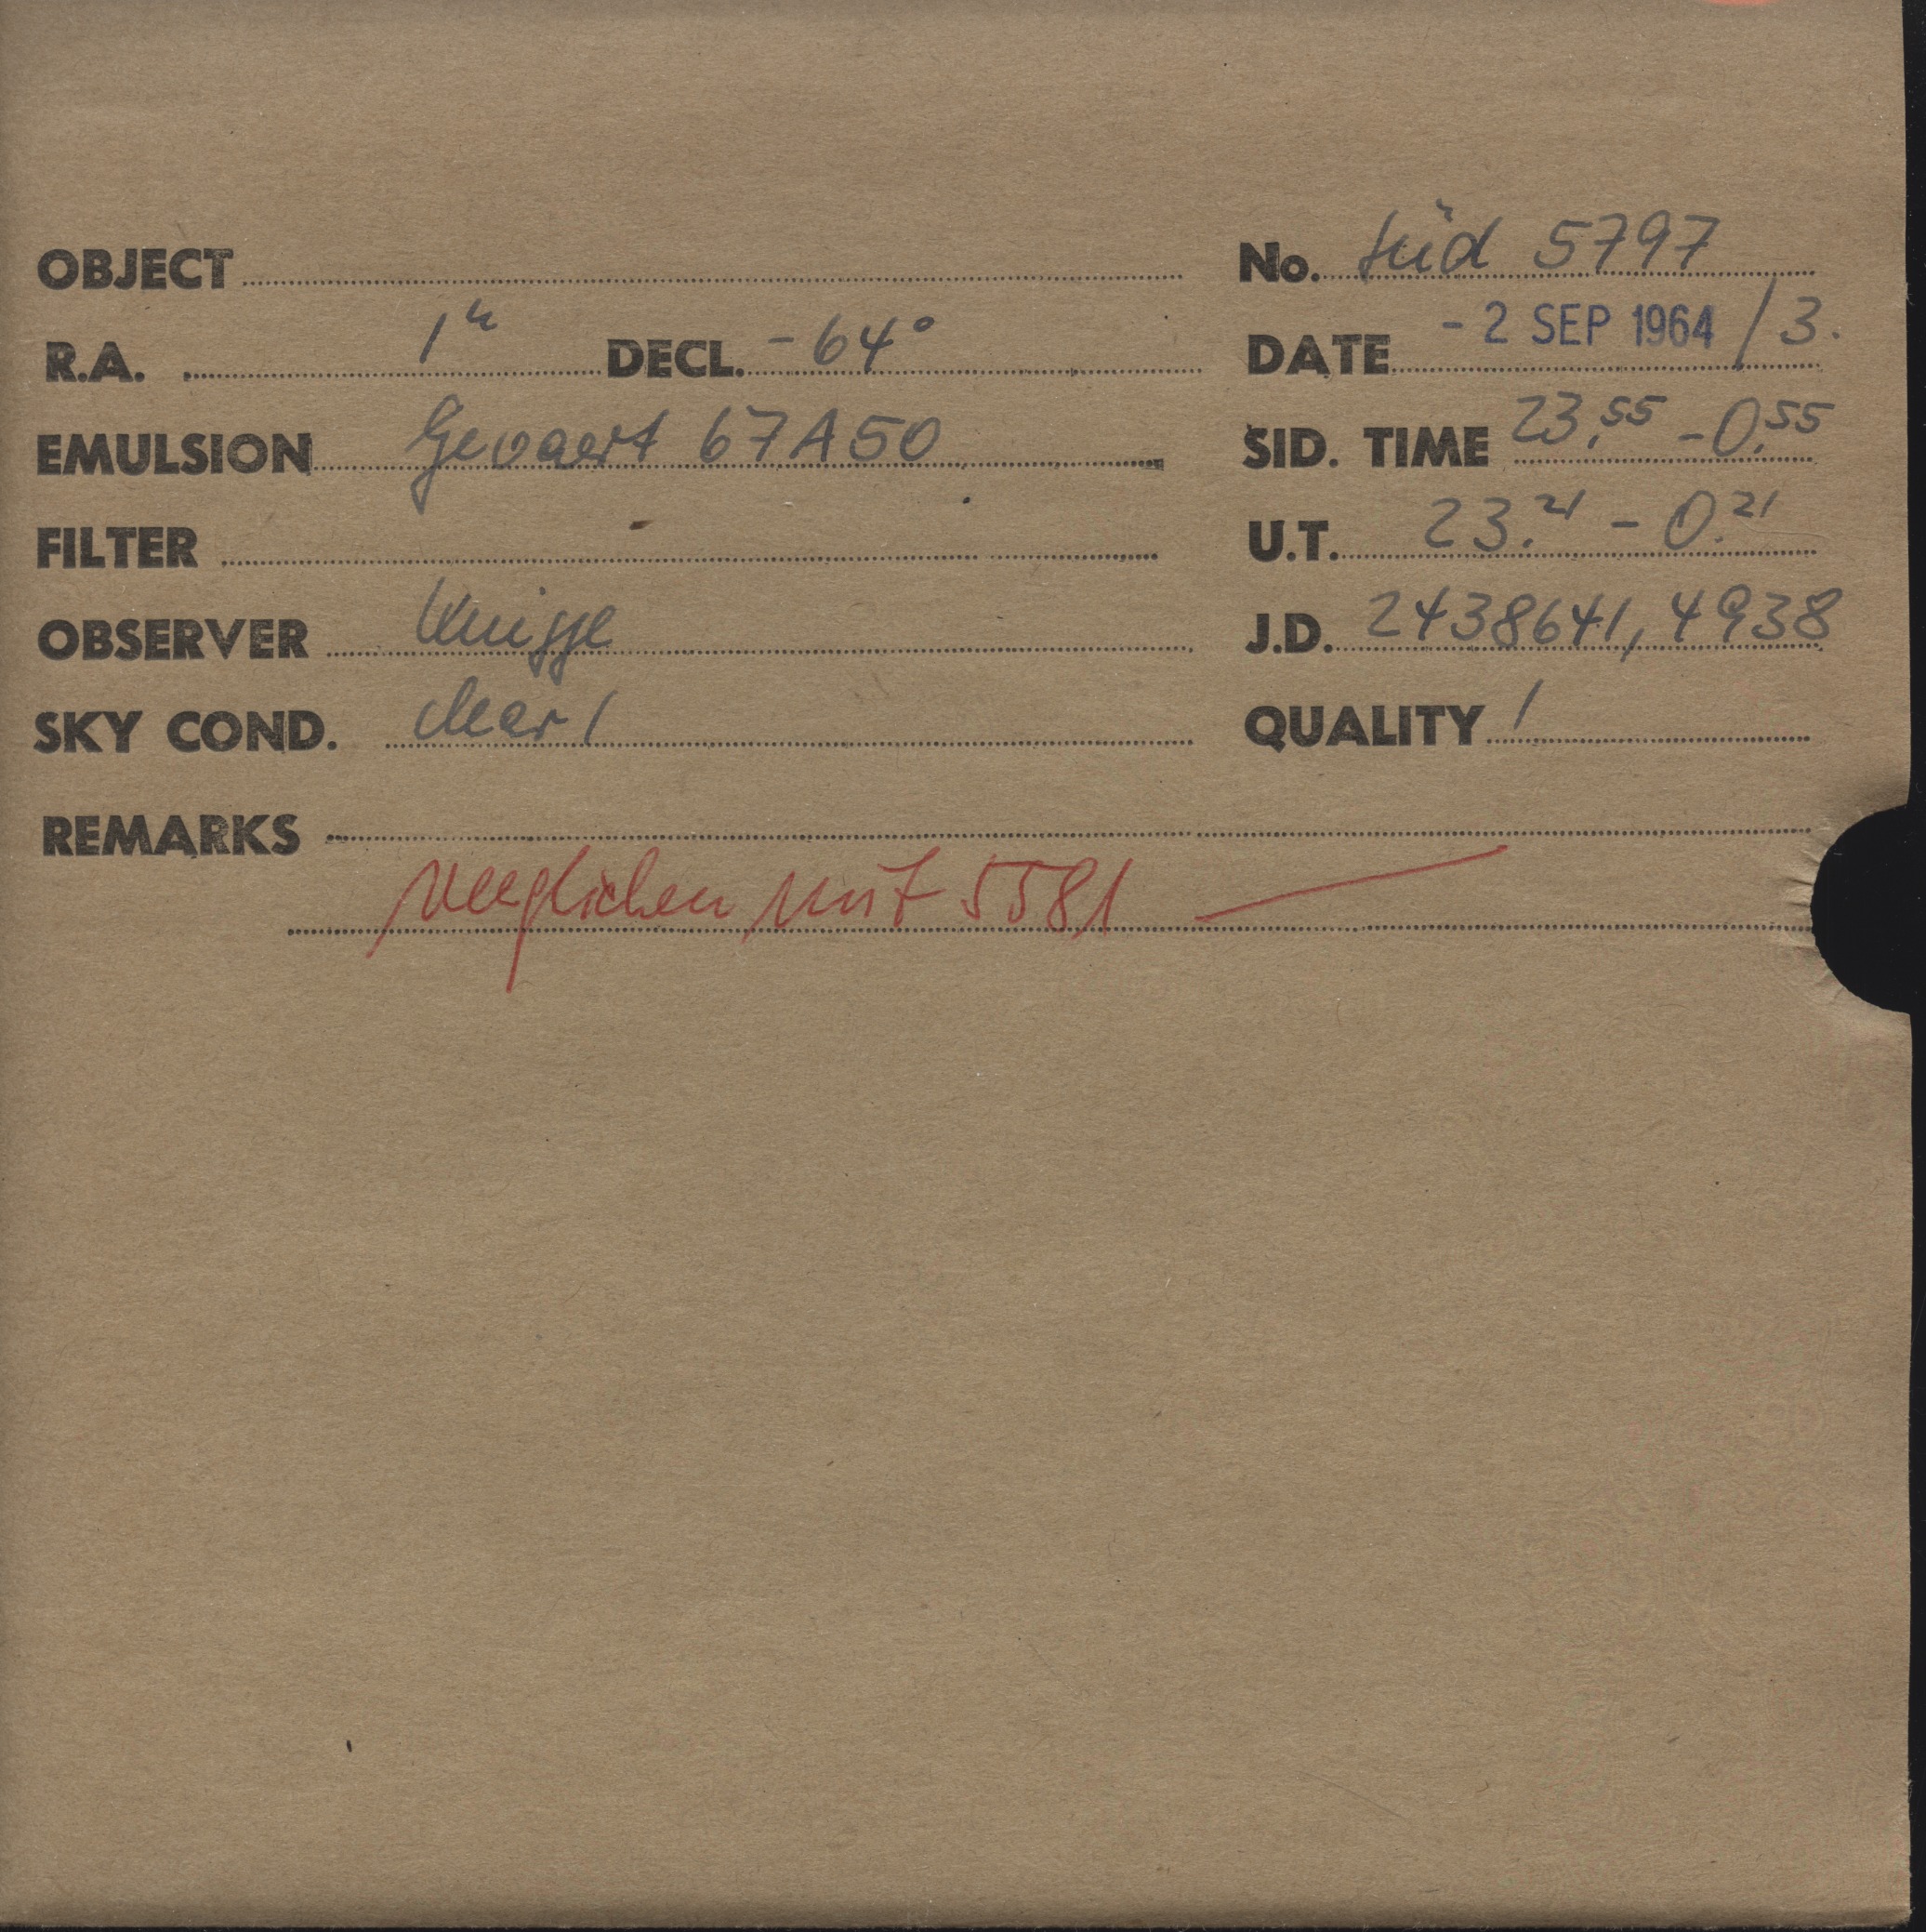 OBJECT No. Süd 5797
R.A. 1h DECL. -64° DATE - 2 SEP 1964 / 3.
EMULSION Gevaert 67A50 SID. TIME 23.55 - 0.55
FILTER U.T. 23.21 - 0.21
OBSERVER Knigge J.D. 2438641,4938
SKY COND. clear 1 QUALITY 1
REMARKS
verglichen mit 5581 —